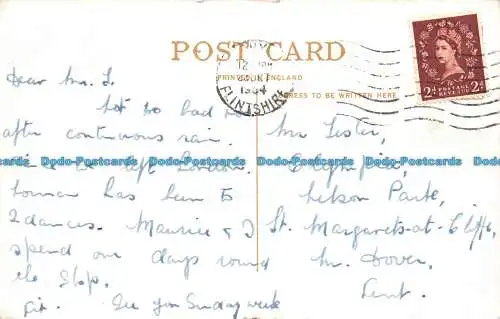 POST CARD
PRINTED IN ENGLAND
ADDRESS TO BE WRITTEN HERE
FLINTSHIRE
1954
POSTAGE REVENUE
2D 2D
Dear Mr. L.
Not too bad
after continuous rain.
left London.
has been to
2 dances. Maurice & I
spend our days round
the shop.
See you Sunday week
Mr Lester,
Olympia,
Nelson Park,
St. Margarets-at-Cliffe,
Nr. Dover,
Kent.
Dodo-Postcards Dodo-Postcards Dodo-Postcards Dodo-Postcards Dodo-Postcards